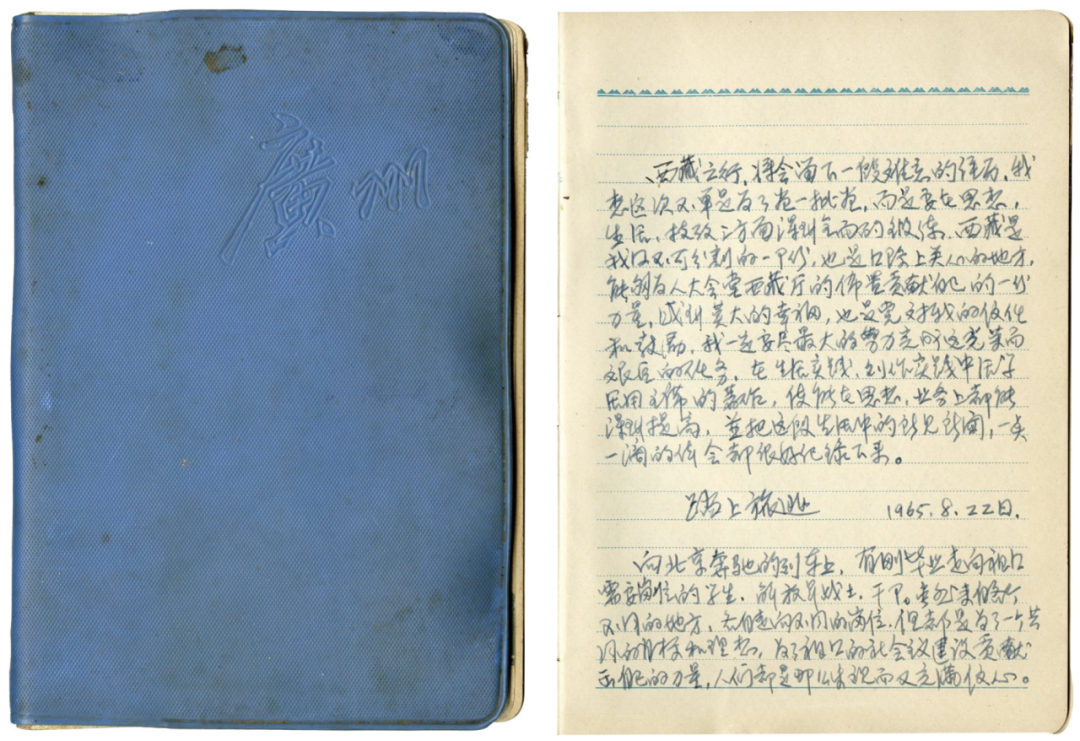 廣州
西藏之行，将会留下一段难忘的经历，我
想这次不单是为了卷一批卷，而是要在思想，
生活，技改三方面得到全面的锻练，西藏是
我囗不可分割的一部份，也是囗际上关心的地方，
能够为人大会堂西藏厅的佈置贡献自己的一份
力量，感到莫大的幸福，也是党对我的信任
和鼓励，我一定要尽最大的努力完成这光荣而
艰巨的任务，在生活实践，创作实践中活学
活用主席的著作，使能在思想，业务上都能
得到提高，並把这段生活中的所见所闻，一点
一滴的体会都很好纪录下来。
踏上旅途 1965.8.22日.
向北京奔驰的列车上，有刚毕业走向祖囗
需要岗位的学生，解放军战士，干部。
不同的地方，走向不同的岗位，但都是为了一个共
同的目标和理想，为了祖囗的社会主义建设贡献
自己的力量，人们都是那么乐观而又充满信心。